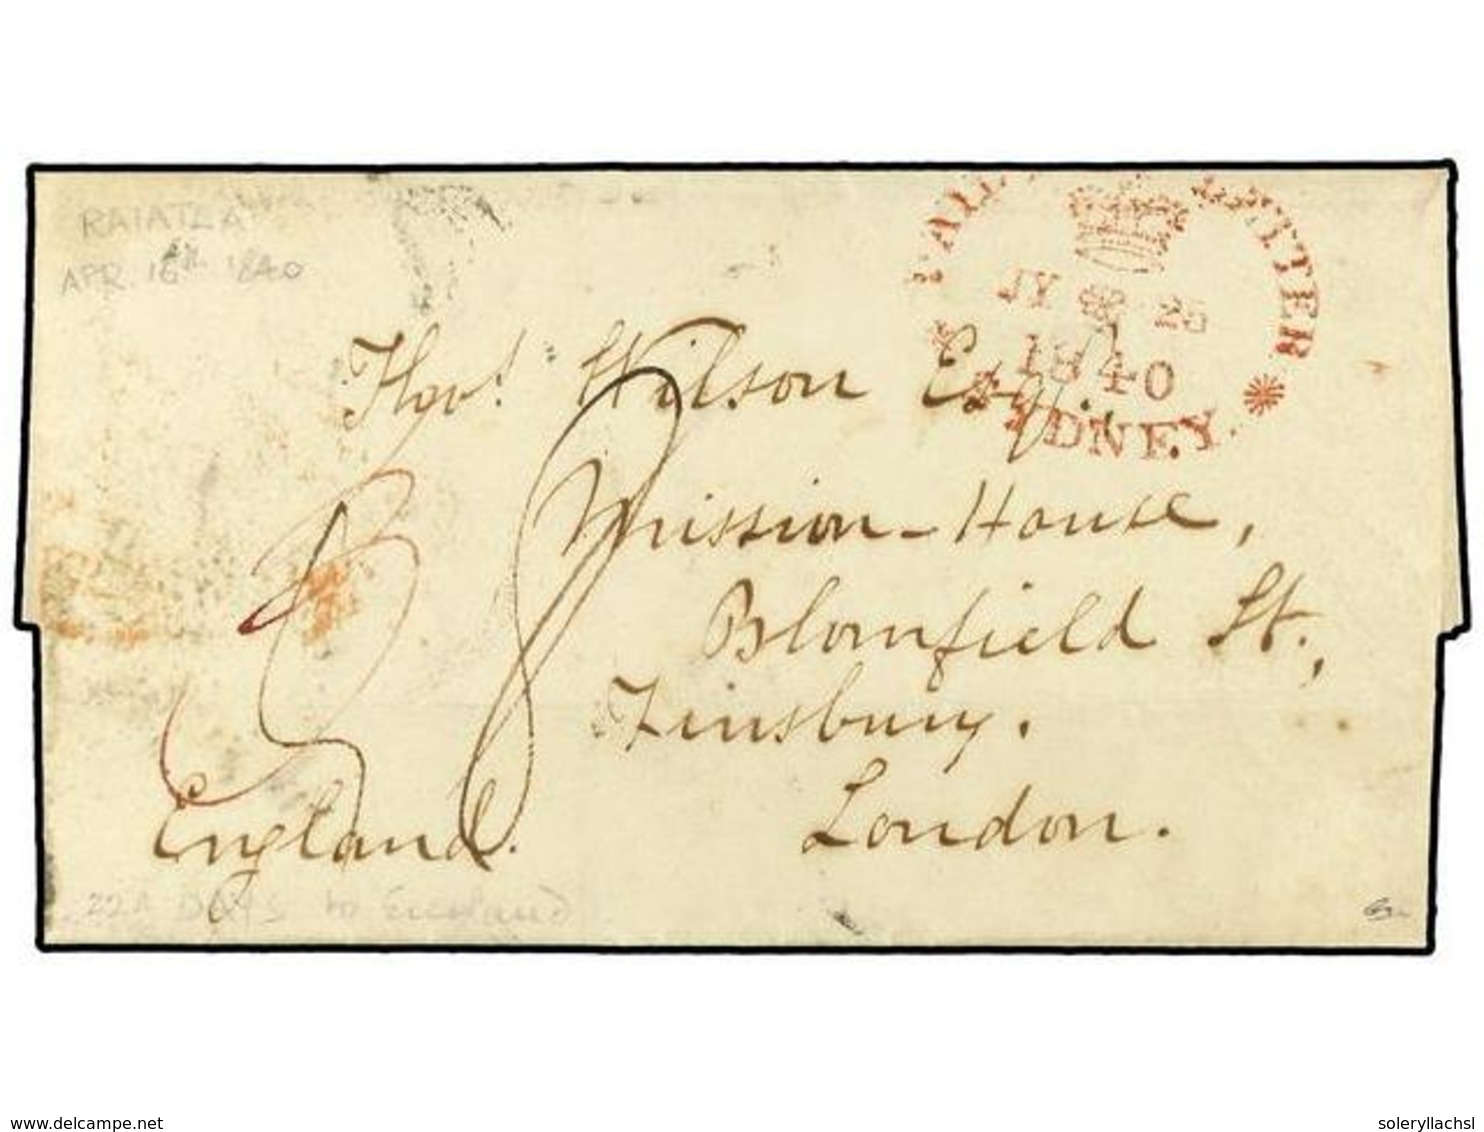 RAIATEA
APR. 16th 1840
PAID LETTER
JY 25
1840
SYDNEY
Thos. Wilson Esq.
Mission-House,
Blomfield St.,
Finsbury.
London.
England.
DAYS to England
www.delcampe.net
soleryllachsl